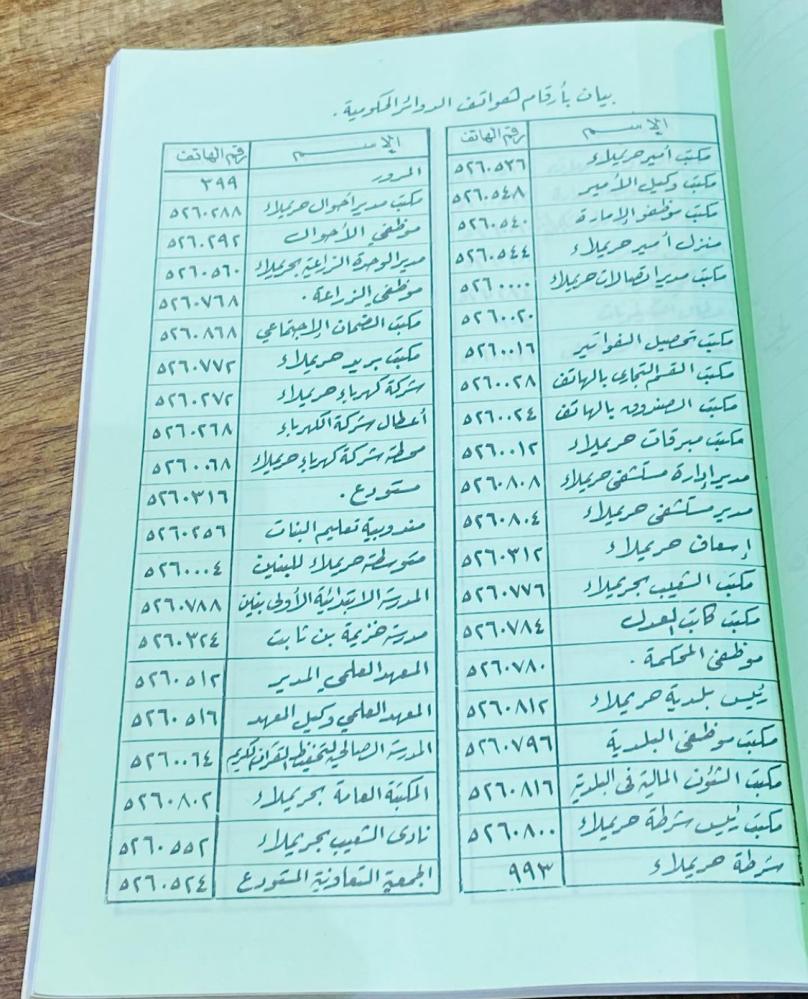 بيان بأرقام لهواتف الدوائر الحكومية .
الإســم رقم الهاتف
مكتب أمير حريملاء ٥٢٦٠٥٣٦
مكتب وكيل الأمير ٥٢٦٠٥٤٨
مكتب موظفو الإمارة ٥٢٦٠٥٤٠
منزل أمير حريملاء ٥٢٦٠٥٤٤
مكتب مدير اتصالات حريملاء ٥٢٦٠٠٠٠
٥٢٦٠٠٢٠
مكتب تحصيل الفواتير ٥٢٦٠٠١٦
مكتب القسم التجاري بالهاتف ٥٢٦٠٠٢٨
مكتب الصندوق بالهاتف ٥٢٦٠٠٢٤
مكتب مبرقات حريملاء ٥٢٦٠٠١٢
مدير إدارة مستشفى حريملاء ٥٢٦٠٨٠٨
مدير مستشفى حريملاء ٥٢٦٠٨٠٤
إسعاف حريملاء ٥٢٦٠٣١٢
مكتب الشعيب بحريملاء ٥٢٦٠٧٧٦
مكتب كاتب العدل ٥٢٦٠٧٨٤
موظفى المحكمة . ٥٢٦٠٧٨٠
رئيس بلدية حريملاء ٥٢٦٠٨١٢
مكتب موظفى البلدية ٥٢٦٠٧٩٦
مكتب الشؤن المالية فى البلدية ٥٢٦٠٨١٦
مكتب رئيس شرطة حريملاء ٥٢٦٠٨٠٠
شرطة حريملاء ٩٩٣
الإســم رقم الهاتف
المرور ٣٩٩
مكتب مدير أحوال حريملاء ٥٢٦٠٢٨٨
موظفي الأحوال ٥٢٦٠٢٩٢
مدير الوحدة الزراعية بحريملاء ٥٢٦٠٥٦٠
موظفي الزراعة . ٥٢٦٠٧٦٨
مكتب الضمان الإجتماعي ٥٢٦٠٨٦٨
مكتب بريد حريملاء ٥٢٦٠٧٧٢
شركة كهرباء حريملاء ٥٢٦٠٢٧٢
أعطال شركة الكهرباء ٥٢٦٠٢٦٨
محطة شركة كهرباء حريملاء ٥٢٦٠٠٦٨
مستودع . ٥٢٦٠٣١٦
مندوبية تعليم البنات ٥٢٦٠٢٥٦
متوسطة حريملاء للبنين ٥٢٦٠٠٠٤
المدرسة الابتدائية الأولى بنين ٥٢٦٠٧٨٨
مدرسة خزيمة بن ثابت ٥٢٦٠٣٢٤
المعهد العلمي المدير ٥٢٦٠٥١٢
المعهد العلمي وكيل المعهد ٥٢٦٠٥١٦
المدرسة الصالحية لتحفيظ القرآن الكريم ٥٢٦٠٠٦٤
المكتبة العامة بحريملاء ٥٢٦٠٨٠٢
نادى الشعيب بحريملاء ٥٢٦٠٥٥٢
الجمعية التعاونية المستودع ٥٢٦٠٥٢٤